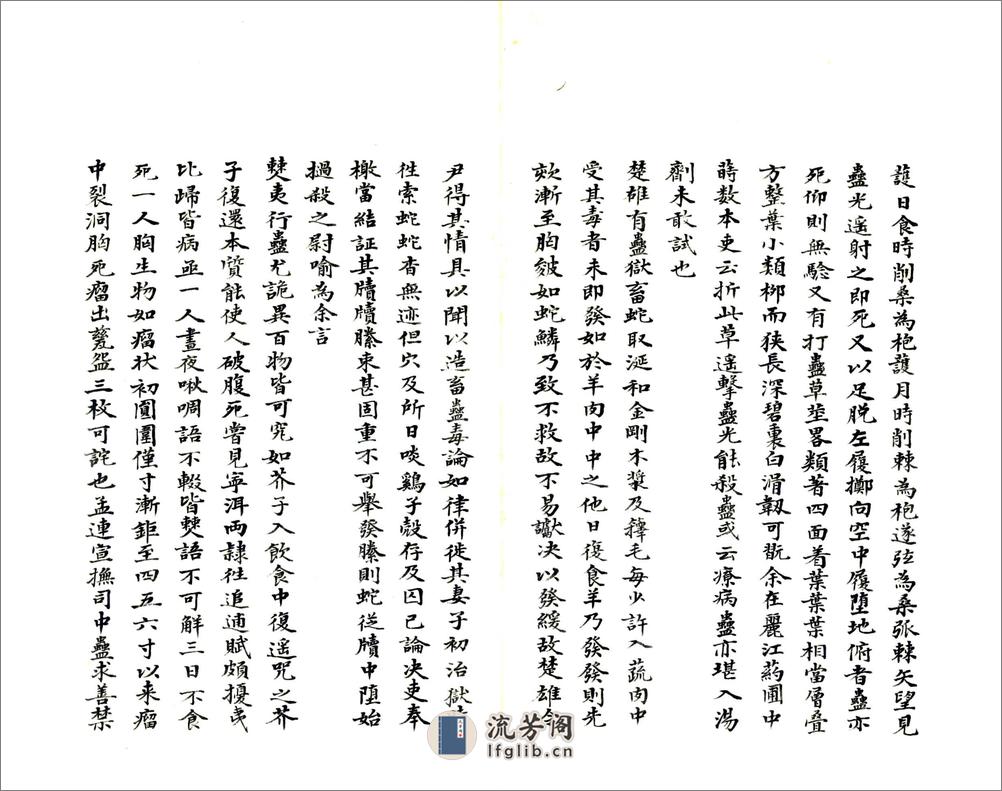 護日食時削桑為枹護月時削棘為枹遂弦為桑張棘矢望見
蠱光遙射之即死又以足脫左履擲向空中履墮地俯者蠱亦
死仰則無驗又有打蠱草莖畧類蓍四面着葉葉葉相當層疊
方整葉小類柳而狭長深碧裏白滑韌可翫余在麗江葯圃中
蒔数本吏云折此草遥擊蠱光能殺蠱或云療病蠱亦堪入湯
劑未敢試也
楚雄有蠱獄畜蛇取涎和金剛木漿及毛每少許入蔬肉中
受其毒者未即發如於羊肉中中之他日復食羊乃發發則先
欬漸至胸皴如蛇鱗乃致不救故不易讞决以發緩故楚雄令
尹得其情具以聞以造畜蠱毒論如律併徙其妻子初治獄
徃索蛇蛇杳無迹但穴及所日啖鷄子殼存及囚已論决吏奉
檄當結証其牘牘縢束甚固重不可舉發縢則蛇從牘中墮始
撾殺之尉喻為余言
僰夷行蠱尤詭異百物皆可究如芥子入飲食中復遥咒之芥
子復還本質能使人破腹死嘗見寧洱兩隸徃追逋賦頗擾夷
比歸皆病亟一人晝夜啾啁語不輟皆僰語不可解三日不食
死一人胸生物如瘤状初圍圍僅寸漸鉅至四五六寸以来瘤
中裂洞胸死瘤出甕盌三枚可詫也孟連宣撫司中蠱求善禁
流芳阁
lfglib.cn